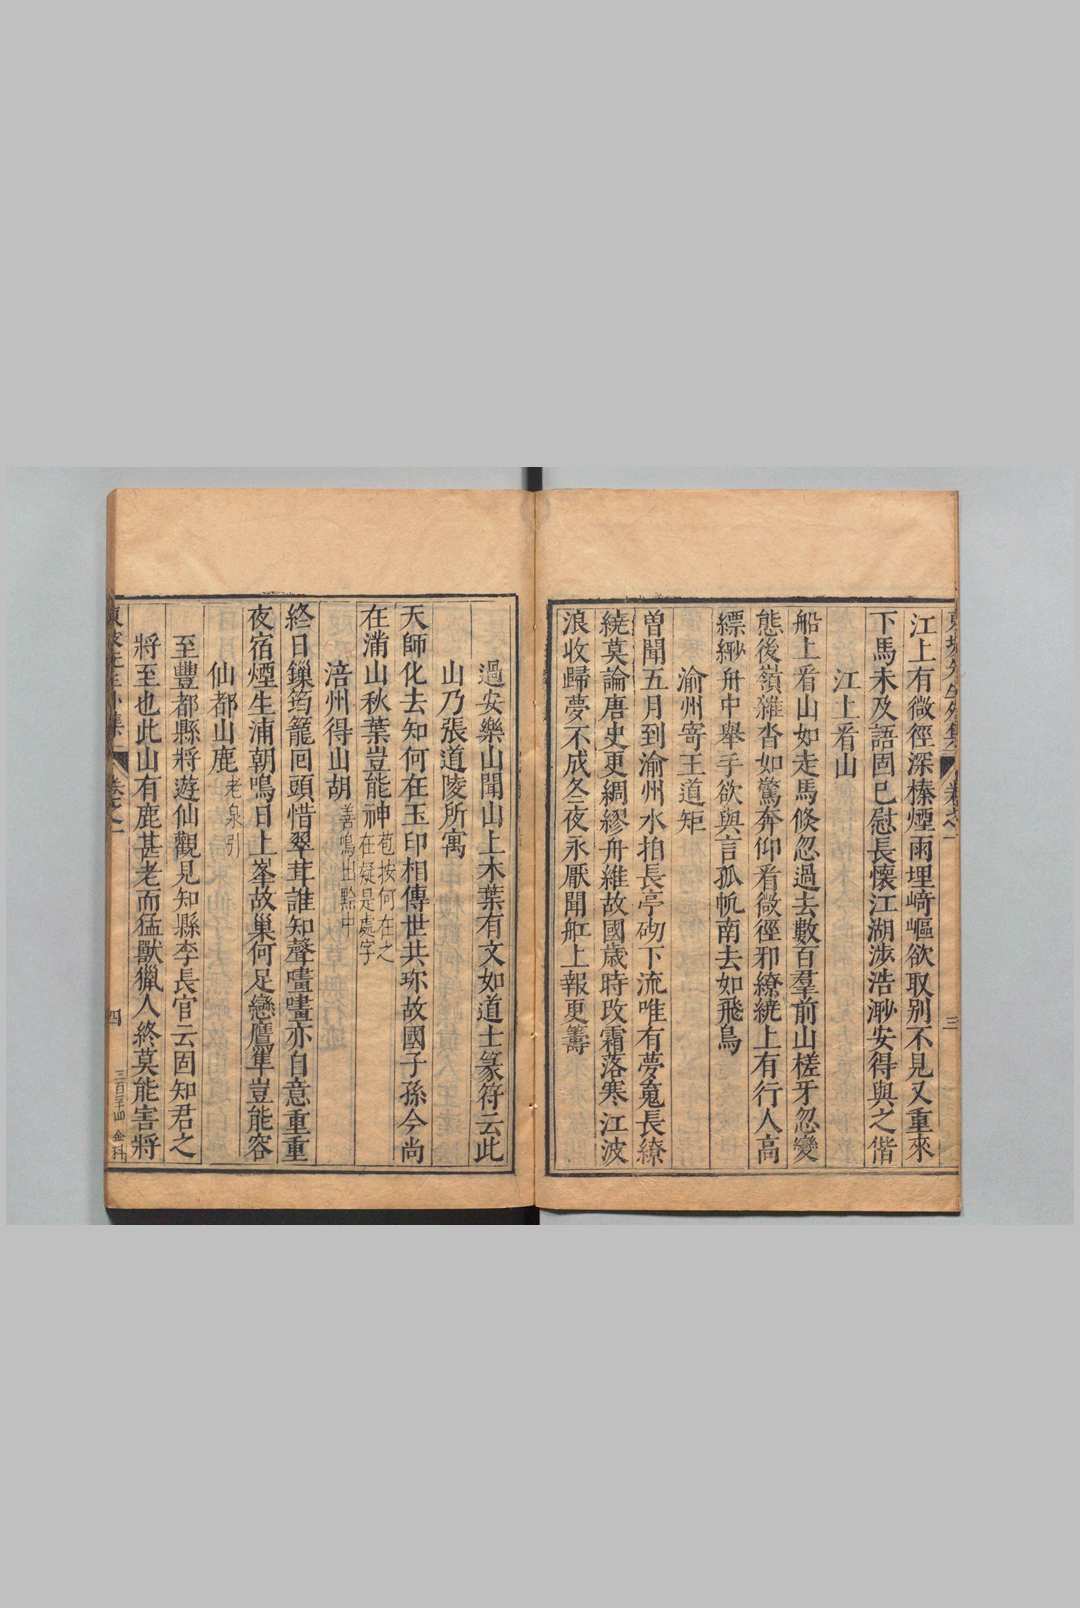 江上有微徑深榛煙雨埋崎嶇欲取别不見又重來
下馬未及語固已慰長懷江湖涉浩渺安得與之偕
江上看山
船上看山如走馬倐忽過去數百羣前山槎牙忽變
態後嶺雜沓如驚奔仰看微徑邪繚繞上有行人高
縹緲舟中舉手欲與言孤帆南去如飛鳥
渝州寄王道矩
曽聞五月到渝州水拍長亭砌下流唯有夢魂長繚
繞莫論唐史更綢繆舟維故國歲時改霜落寒江波
浪收歸夢不成冬夜永厭聞舡上報更籌
三
過安樂山聞山上木葉有文如道士篆符云此
山乃張道陵所寓
天師化去知何在玉印相傳世共珎故國子孫今尚
在滿山秋葉豈能神苞按何在之
在疑是處字
涪州得山胡善鳴出黔中
終日鏁筠籠囘頭惜翠茸誰知聲嘒嘒亦自意重重
夜宿煙生浦朝鳴日上峯故巢何足戀鷹隼豈能容
仙都山鹿老泉引
至豐都縣將遊仙觀見知縣李長官云固知君之
將至也此山有鹿甚老而猛獸獵人終莫能害將
東坡先生外集 卷之一
四